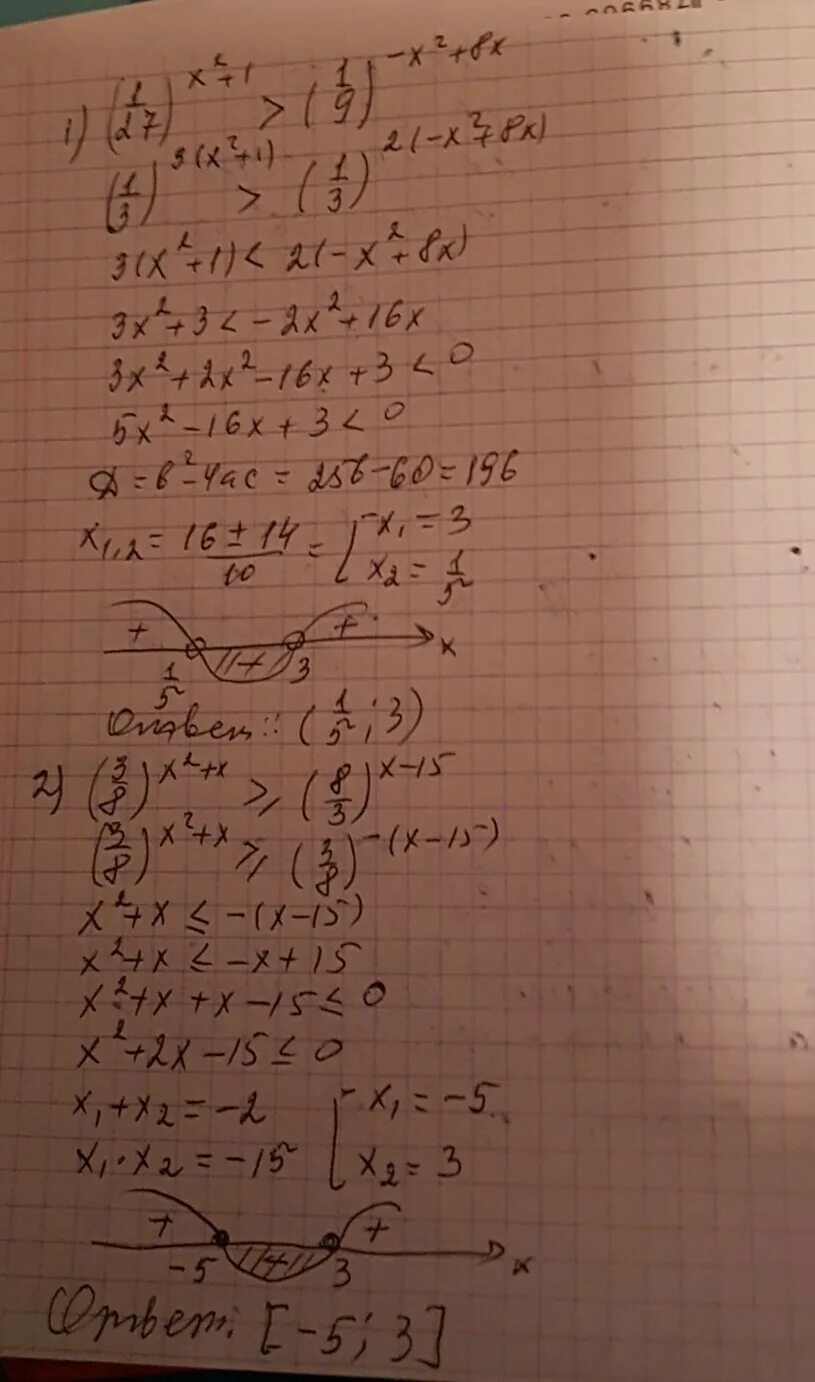 1) (1/27)^(x²+1) > (1/9)^(-x²+8x)
(1/3)^(3(x²+1)) > (1/3)^(2(-x²+8x))
3(x²+1) < 2(-x²+8x)
3x²+3 < -2x²+16x
3x²+2x²-16x+3 < 0
5x²-16x+3 < 0
D = b²-4ac = 256-60 = 196
x₁,₂ = (16 ± 14)/10 = [x₁ = 3
x₂ = 1/5
+ + + x
1/5 3
Ответ: (1/5; 3)
2) (3/8)^(x²+x) ⩾ (8/3)^(x-15)
(3/8)^(x²+x) ⩾ (3/8)^(-(x-15))
x²+x ≤ -(x-15)
x²+x ≤ -x+15
x²+x+x-15 ≤ 0
x²+2x-15 ≤ 0
x₁+x₂ = -2 [x₁ = -5
x₁·x₂ = -15 x₂ = 3
+ + + x
-5 3
Ответ: [-5; 3]